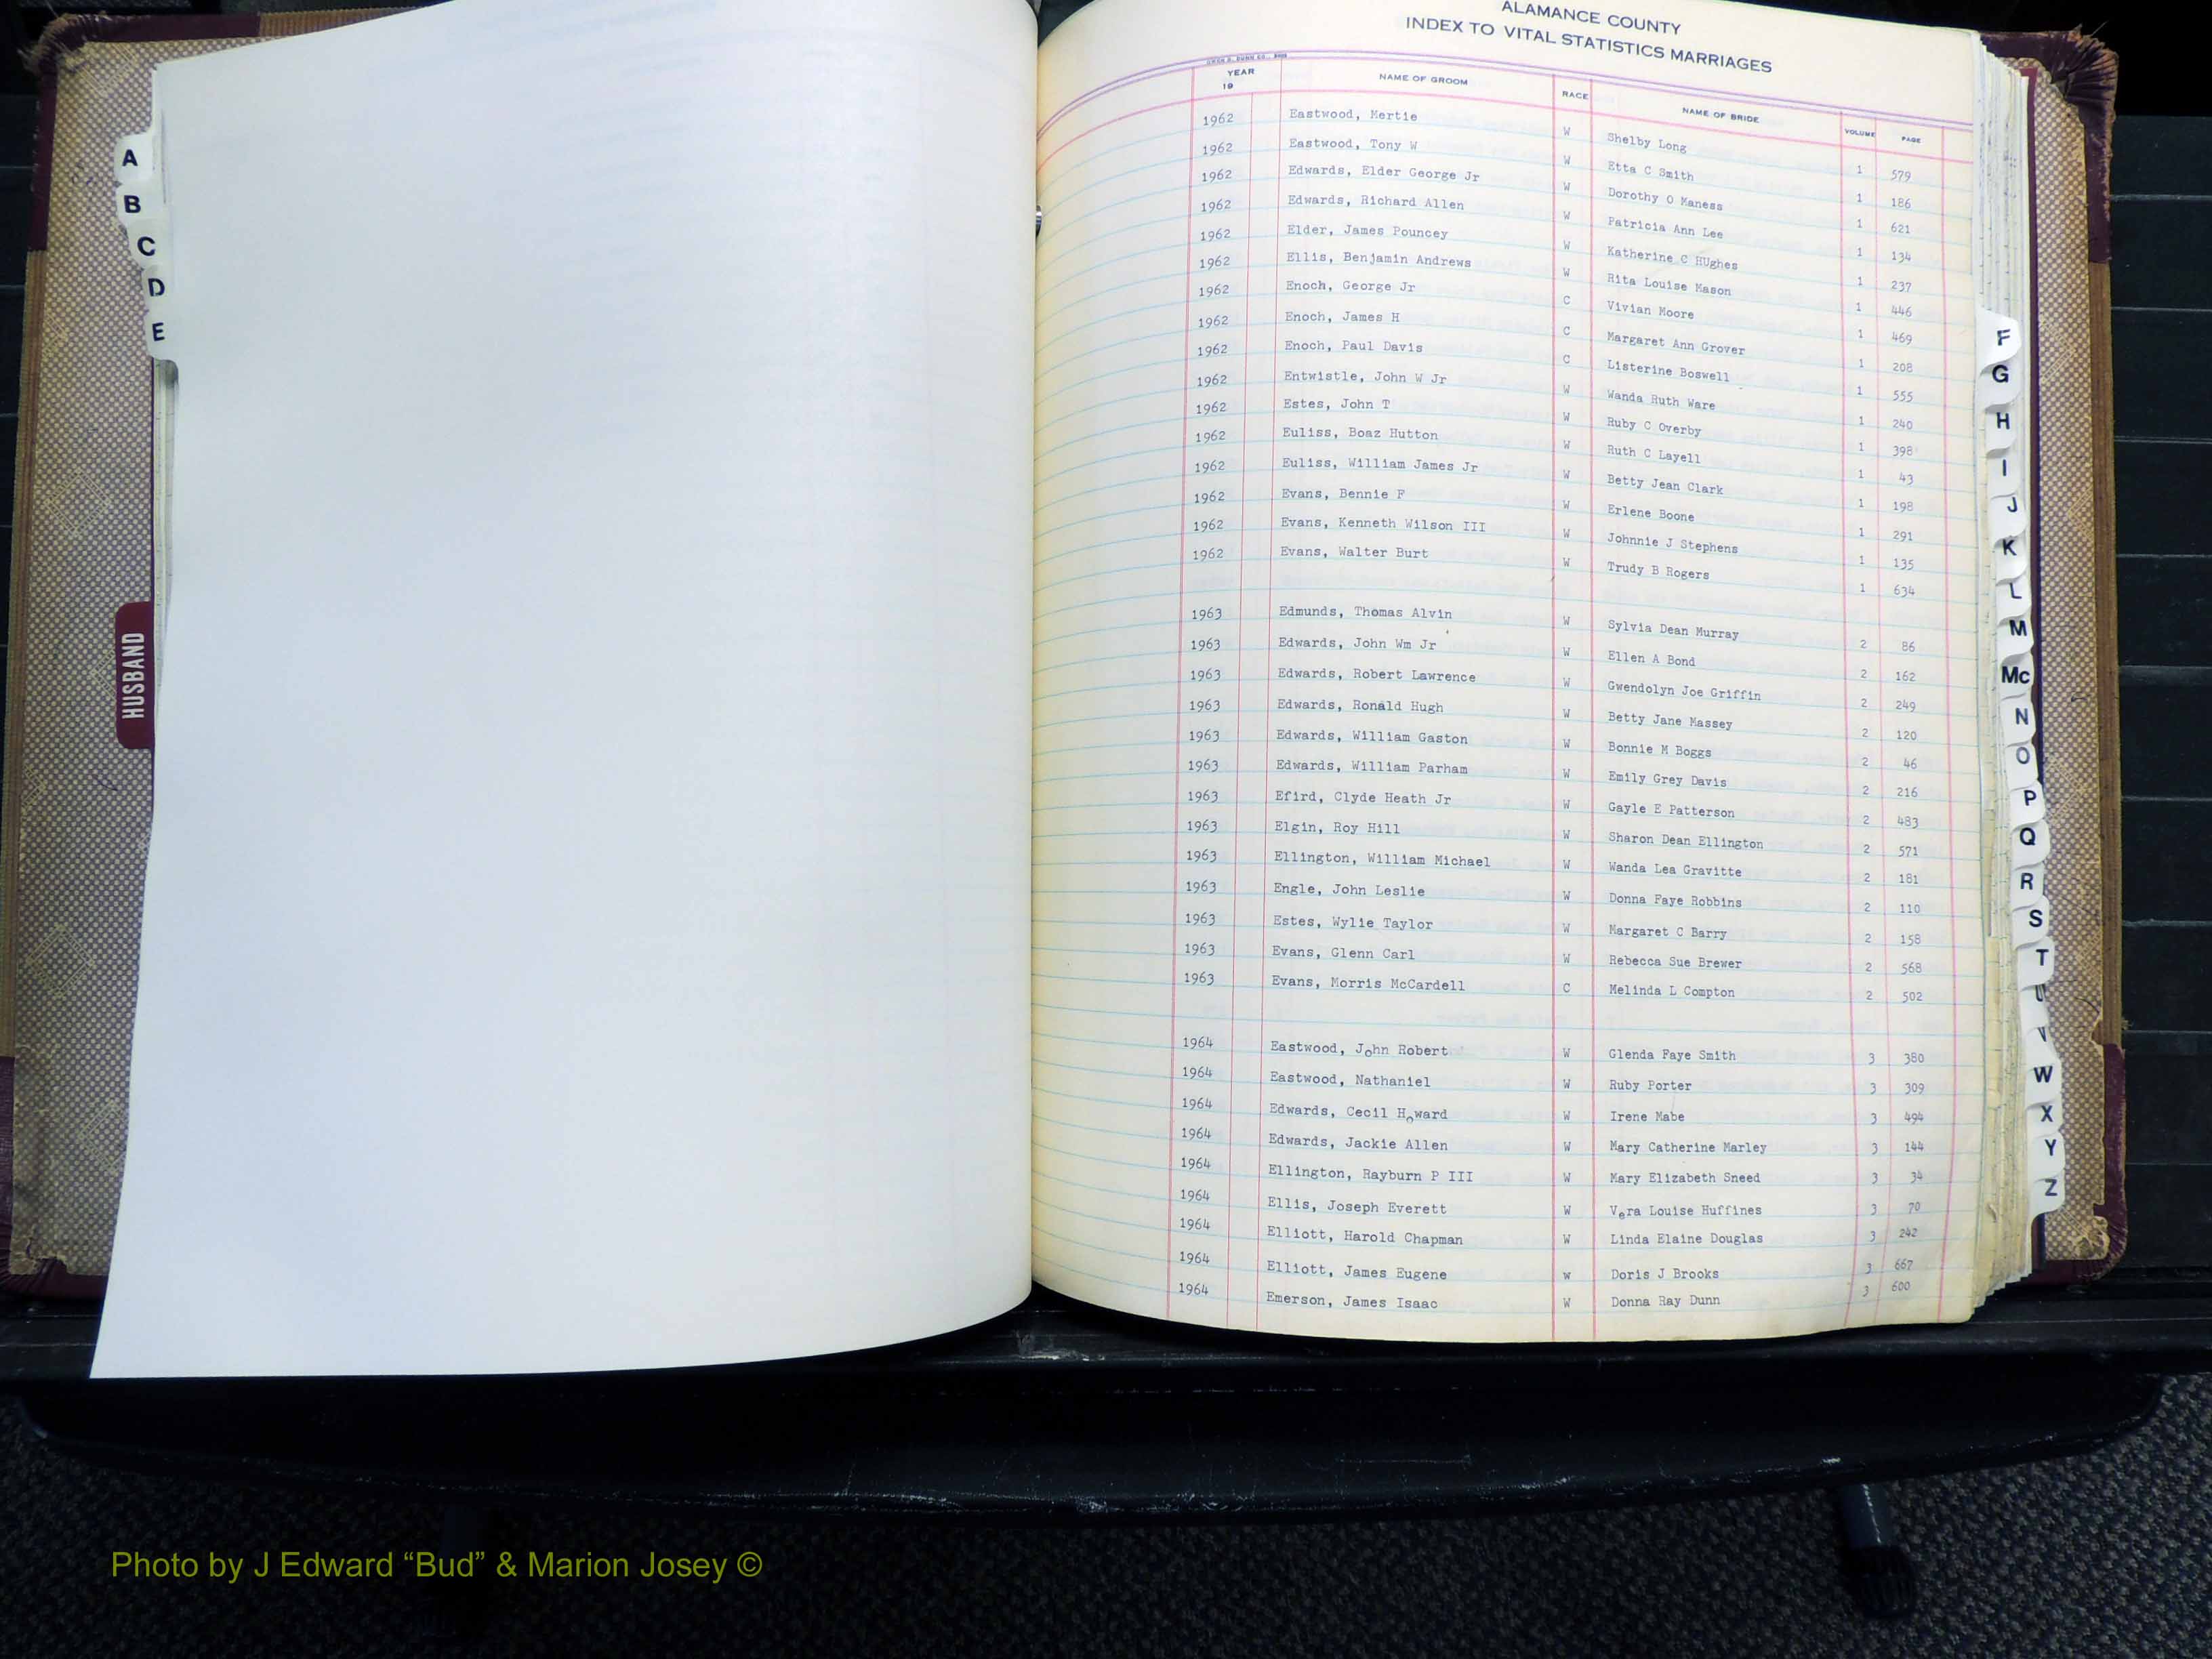 A
B
C
D
E
HUSBAND
ALAMANCE COUNTY
INDEX TO VITAL STATISTICS MARRIAGES
YEAR 19 NAME OF GROOM RACE NAME OF BRIDE VOLUME PAGE
1962 Eastwood, Mertie W Shelby Long 1 579
1962 Eastwood, Tony W W Etta C Smith 1 186
1962 Edwards, Elder George Jr W Dorothy O Maness 1 621
1962 Edwards, Richard Allen W Patricia Ann Lee 1 134
1962 Elder, James Pouncey W Katherine C HUghes 1 237
1962 Ellis, Benjamin Andrews W Rita Louise Mason 1 446
1962 Enoch, George Jr C Vivian Moore 1 469
1962 Enoch, James H C Margaret Ann Grover 1 208
1962 Enoch, Paul Davis C Listerine Boswell 1 555
1962 Entwistle, John W Jr W Wanda Ruth Ware 1 240
1962 Estes, John T W Ruby C Overby 1 398
1962 Euliss, Boaz Hutton W Ruth C Layell 1 43
1962 Euliss, William James Jr W Betty Jean Clark 1 198
1962 Evans, Bennie F W Erlene Boone 1 291
1962 Evans, Kenneth Wilson III W Johnnie J Stephens 1 135
1962 Evans, Walter Burt W Trudy B Rogers 1 634
1963 Edmunds, Thomas Alvin W Sylvia Dean Murray 2 86
1963 Edwards, John Wm Jr W Ellen A Bond 2 162
1963 Edwards, Robert Lawrence W Gwendolyn Joe Griffin 2 249
1963 Edwards, Ronald Hugh W Betty Jane Massey 2 120
1963 Edwards, William Gaston W Bonnie M Boggs 2 46
1963 Edwards, William Parham W Emily Grey Davis 2 216
1963 Efird, Clyde Heath Jr W Gayle E Patterson 2 483
1963 Elgin, Roy Hill W Sharon Dean Ellington 2 571
1963 Ellington, William Michael W Wanda Lea Gravitte 2 181
1963 Engle, John Leslie W Donna Faye Robbins 2 110
1963 Estes, Wylie Taylor W Margaret C Barry 2 158
1963 Evans, Glenn Carl W Rebecca Sue Brewer 2 568
1963 Evans, Morris McCardell C Melinda L Compton 2 502
1964 Eastwood, John Robert W Glenda Faye Smith 3 380
1964 Eastwood, Nathaniel W Ruby Porter 3 309
1964 Edwards, Cecil Howard W Irene Mabe 3 494
1964 Edwards, Jackie Allen W Mary Catherine Marley 3 144
1964 Ellington, Rayburn P III W Mary Elizabeth Sneed 3 34
1964 Ellis, Joseph Everett W Vera Louise Huffines 3 70
1964 Elliott, Harold Chapman W Linda Elaine Douglas 3 242
1964 Elliott, James Eugene w Doris J Brooks 3 667
1964 Emerson, James Isaac W Donna Ray Dunn 3 600
F
G
H
I
J
K
L
M
Mc
N
O
P
Q
R
S
T
U
V
W
X
Y
Z
Photo by J Edward “Bud” & Marion Josey ©